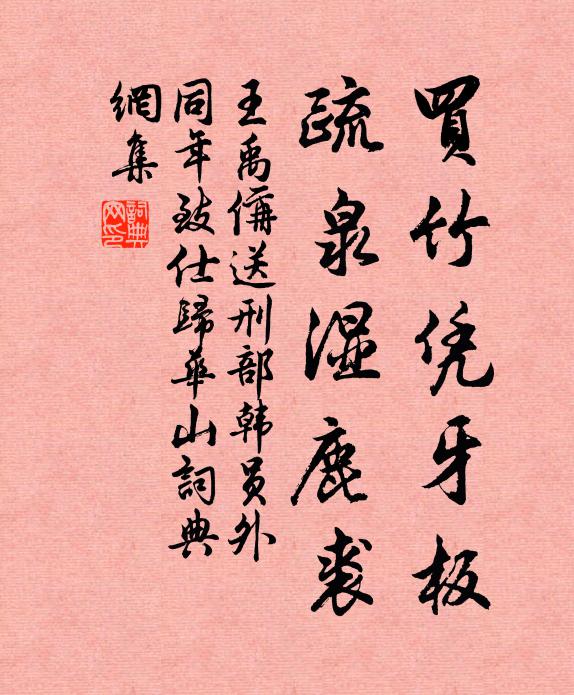 買竹凭牙板
疏泉濕鹿裘
王禹偁送刑部韩员外
同年致仕歸華山詞典
網集
詞典
网印